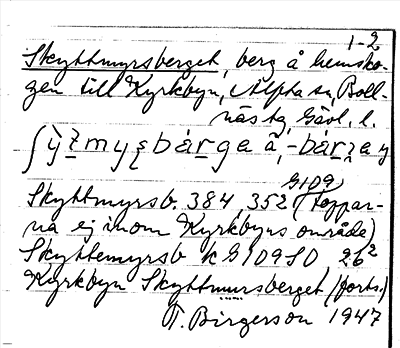 1-2
Skyttmyrsberget, berg å hemsko-
gen till Kyrkbyn, Alfta sn, Boll-
näs tg, Gävl. l.
G109
Skyttmyrsb. 384, 352 (Toppar-
na ej inom Kyrkbyns område)
Skyttemyrsb k G109SO 26²
Kyrkbyn Skyttmursberget (forts.)
T. Birgerson 1947